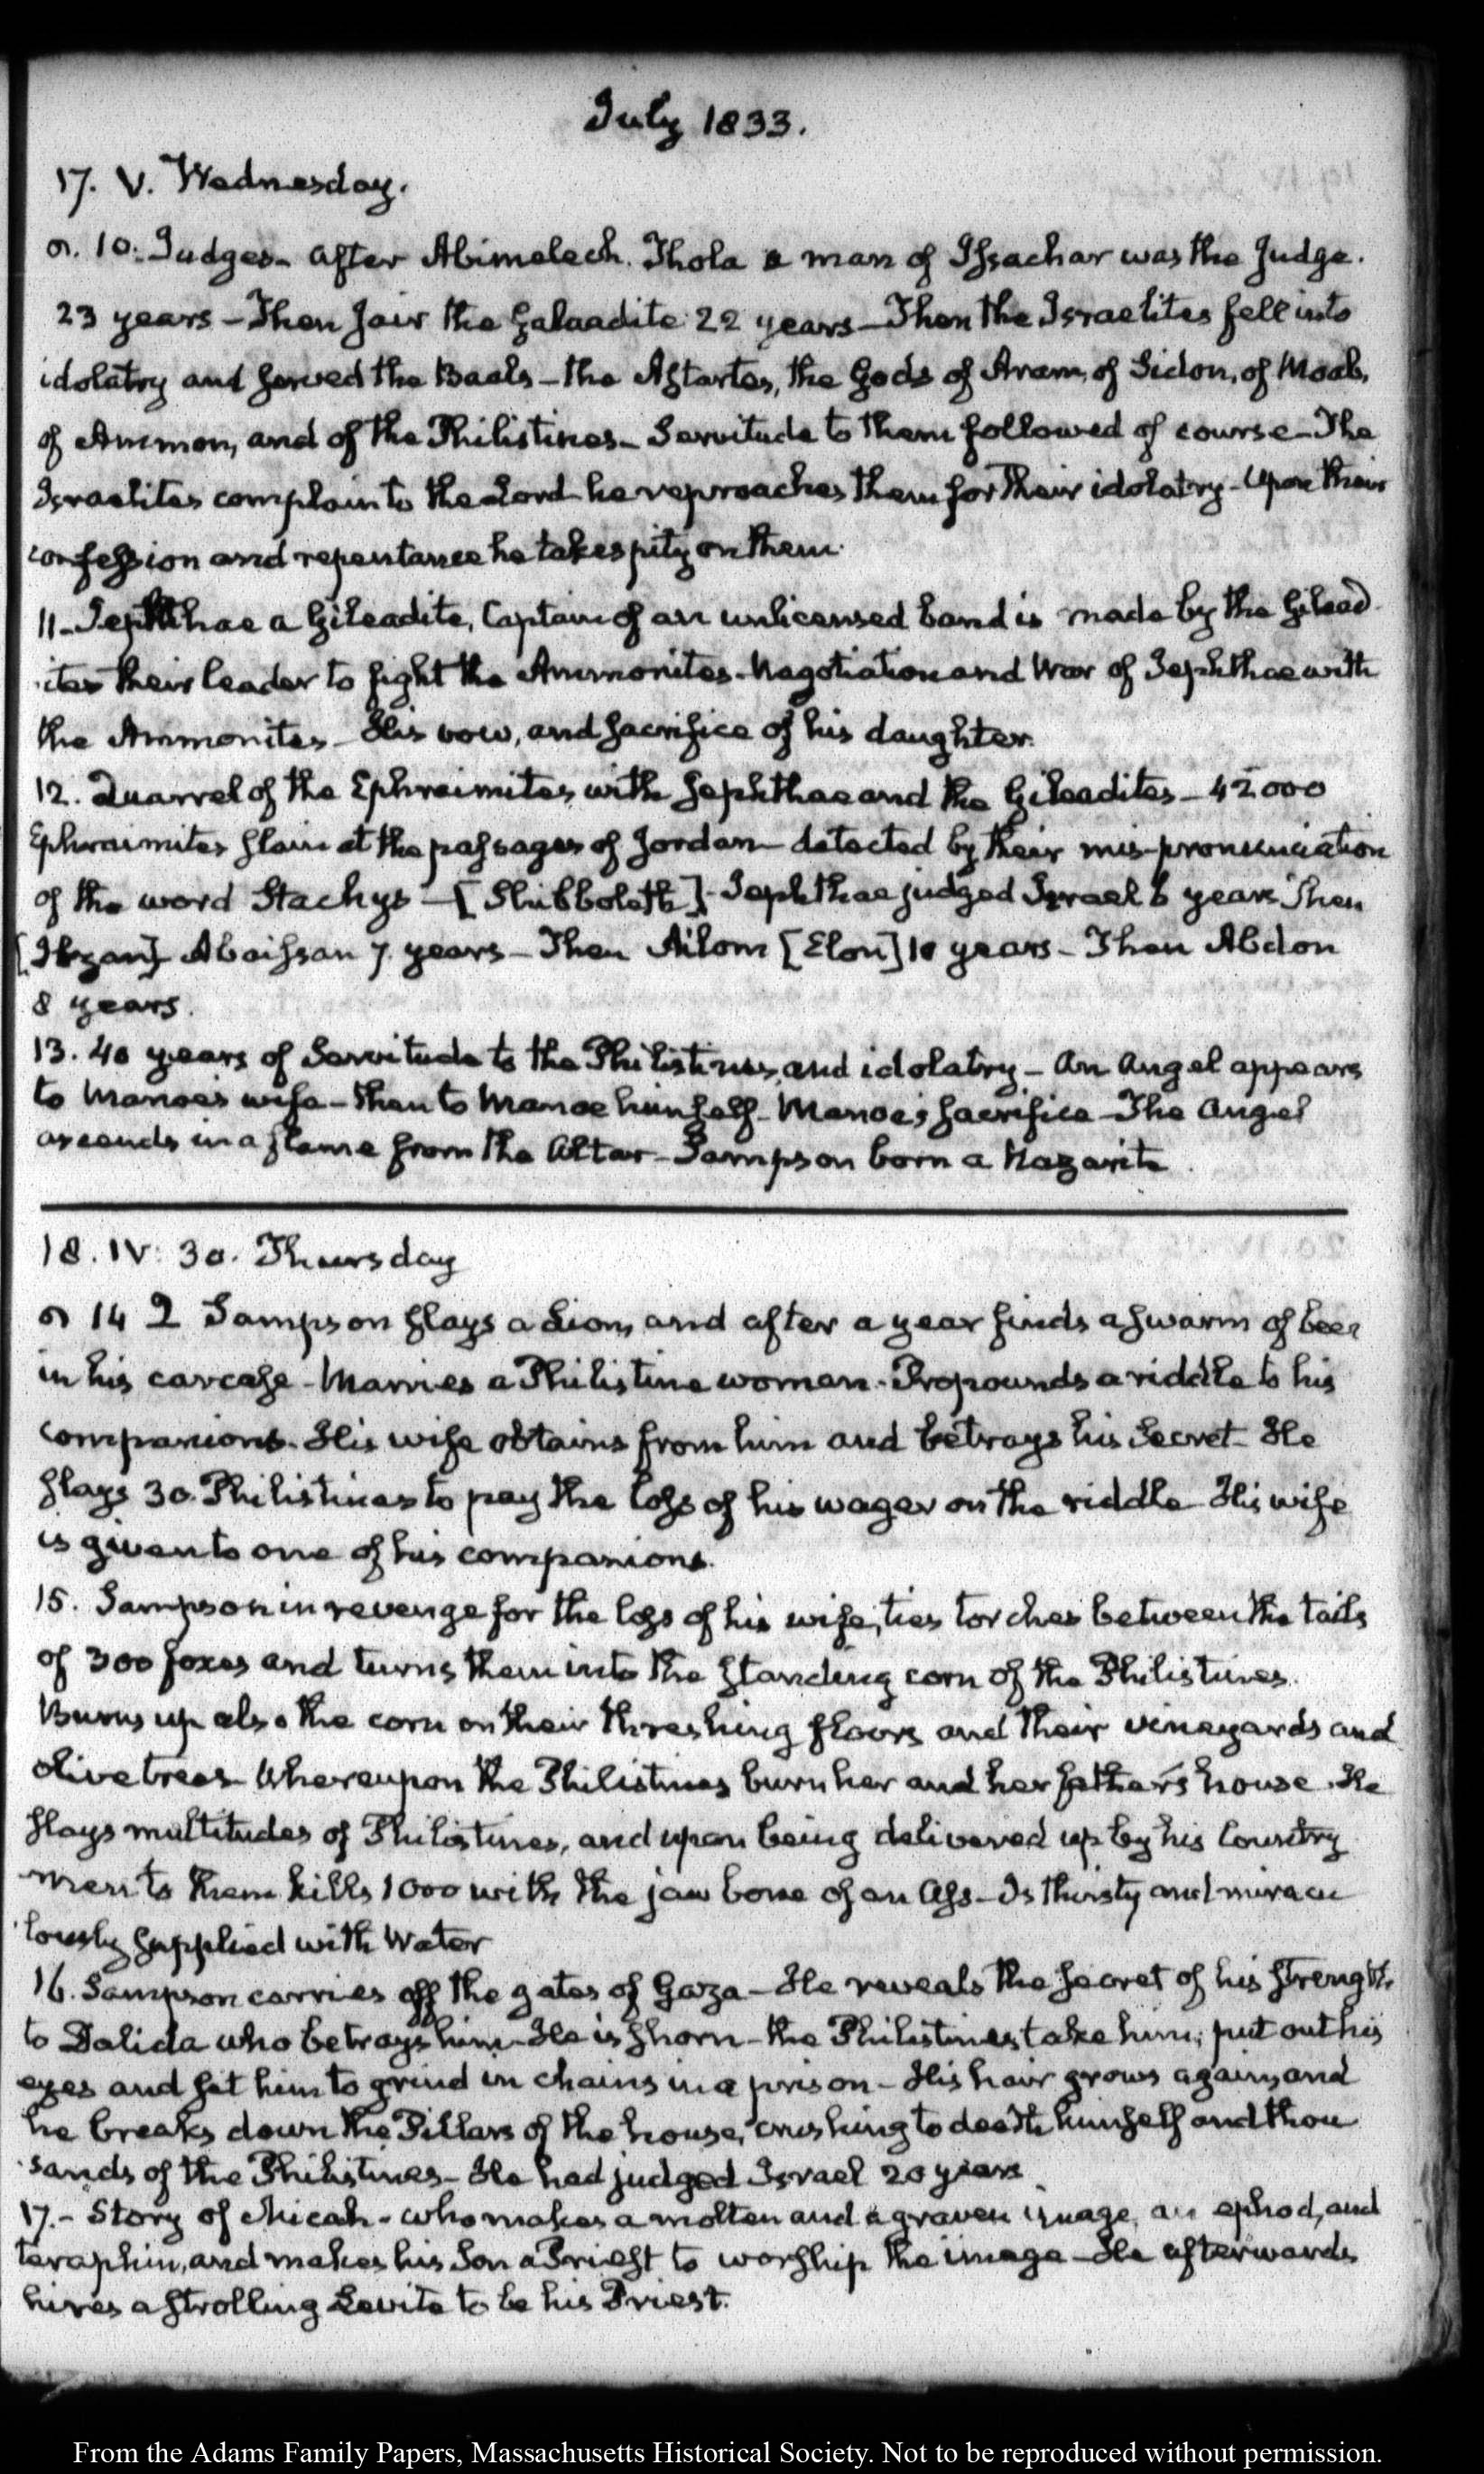 July 1833.
17. V. Wednesday.
10. Judges - After Abimelech. Thola a man of Issachar was the Judge.
23 years - Then Jair the Galaadite 22 years - Then the Israelites fell into
idolatry and served the Baals - the Astartes, the Gods of Aram, of Sidon, of Moab,
of Ammon, and of the Philistines - Servitude to them followed of course - The
Israelites complain to the Lord he reproaches them for their idolatry - Upon their
confession and repentance he takes pity on them.
11 - Jephthae a Gileadite, Captain of an unlicensed band is made by the Gilead
ites their leader to fight the Ammonites - Negotiation and War of Jephthae with
the Ammonites - His vow, and sacrifice of his daughter.
12. Quarrel of the Ephraimites with Jephthae and the Gileadites - 42000
Ephraimites slain at the passages of Jordan - detected by their mis-pronunciation
of the word Stachys - [Shibboleth] - Jephthae judged Israel 6 years Then
[Ibzan] Abaissan 7 years - Then Ailom [Elon] 10 years - Then Abdon
8 years.
13. 40 years of Servitude to the Philistines, and idolatry - An Angel appears
to Manoe's wife - then to Manoe himself - Manoe's sacrifice - The Angel
ascends in a flame from the Altar - Sampson born a Nazarite.
18. IV. 30. Thursday
14 Sampson slays a Lion, and after a year finds a swarm of bees
in his carcase - Marries a Philistine woman - Propounds a riddle to his
companions - His wife obtains from him and betrays his Secret - He
slays 30 Philistines to pay the loss of his wager on the riddle - His wife
is given to one of his companions.
15. Sampson in revenge for the loss of his wife, ties torches between the tails
of 300 foxes and turns them into the standing corn of the Philistines.
Burns up also the corn on their threshing floors and their vineyards and
olive trees - Whereupon the Philistines burn her and her father's house - He
slays multitudes of Philistines, and upon being delivered up by his Country
men to them kills 1000 with the jaw bone of an Ass - Is thirsty and miracu
lously supplied with Water
16. Sampson carries off the gates of Gaza - He reveals the secret of his strength
to Dalida who betrays him - He is shorn - the Philistines take him, put out his
eyes and set him to grind in chains in a prison - His hair grows again, and
he breaks down the Pillars of the house, crushing to death himself and thou
sands of the Philistines - He had judged Israel 20 years
17. - Story of Micah - who makes a molten and a graven image, an ephod, and
teraphin, and makes his Son a Priest to worship the image - He afterwards
hires a strolling Levite to be his Priest.
From the Adams Family Papers, Massachusetts Historical Society. Not to be reproduced without permission.